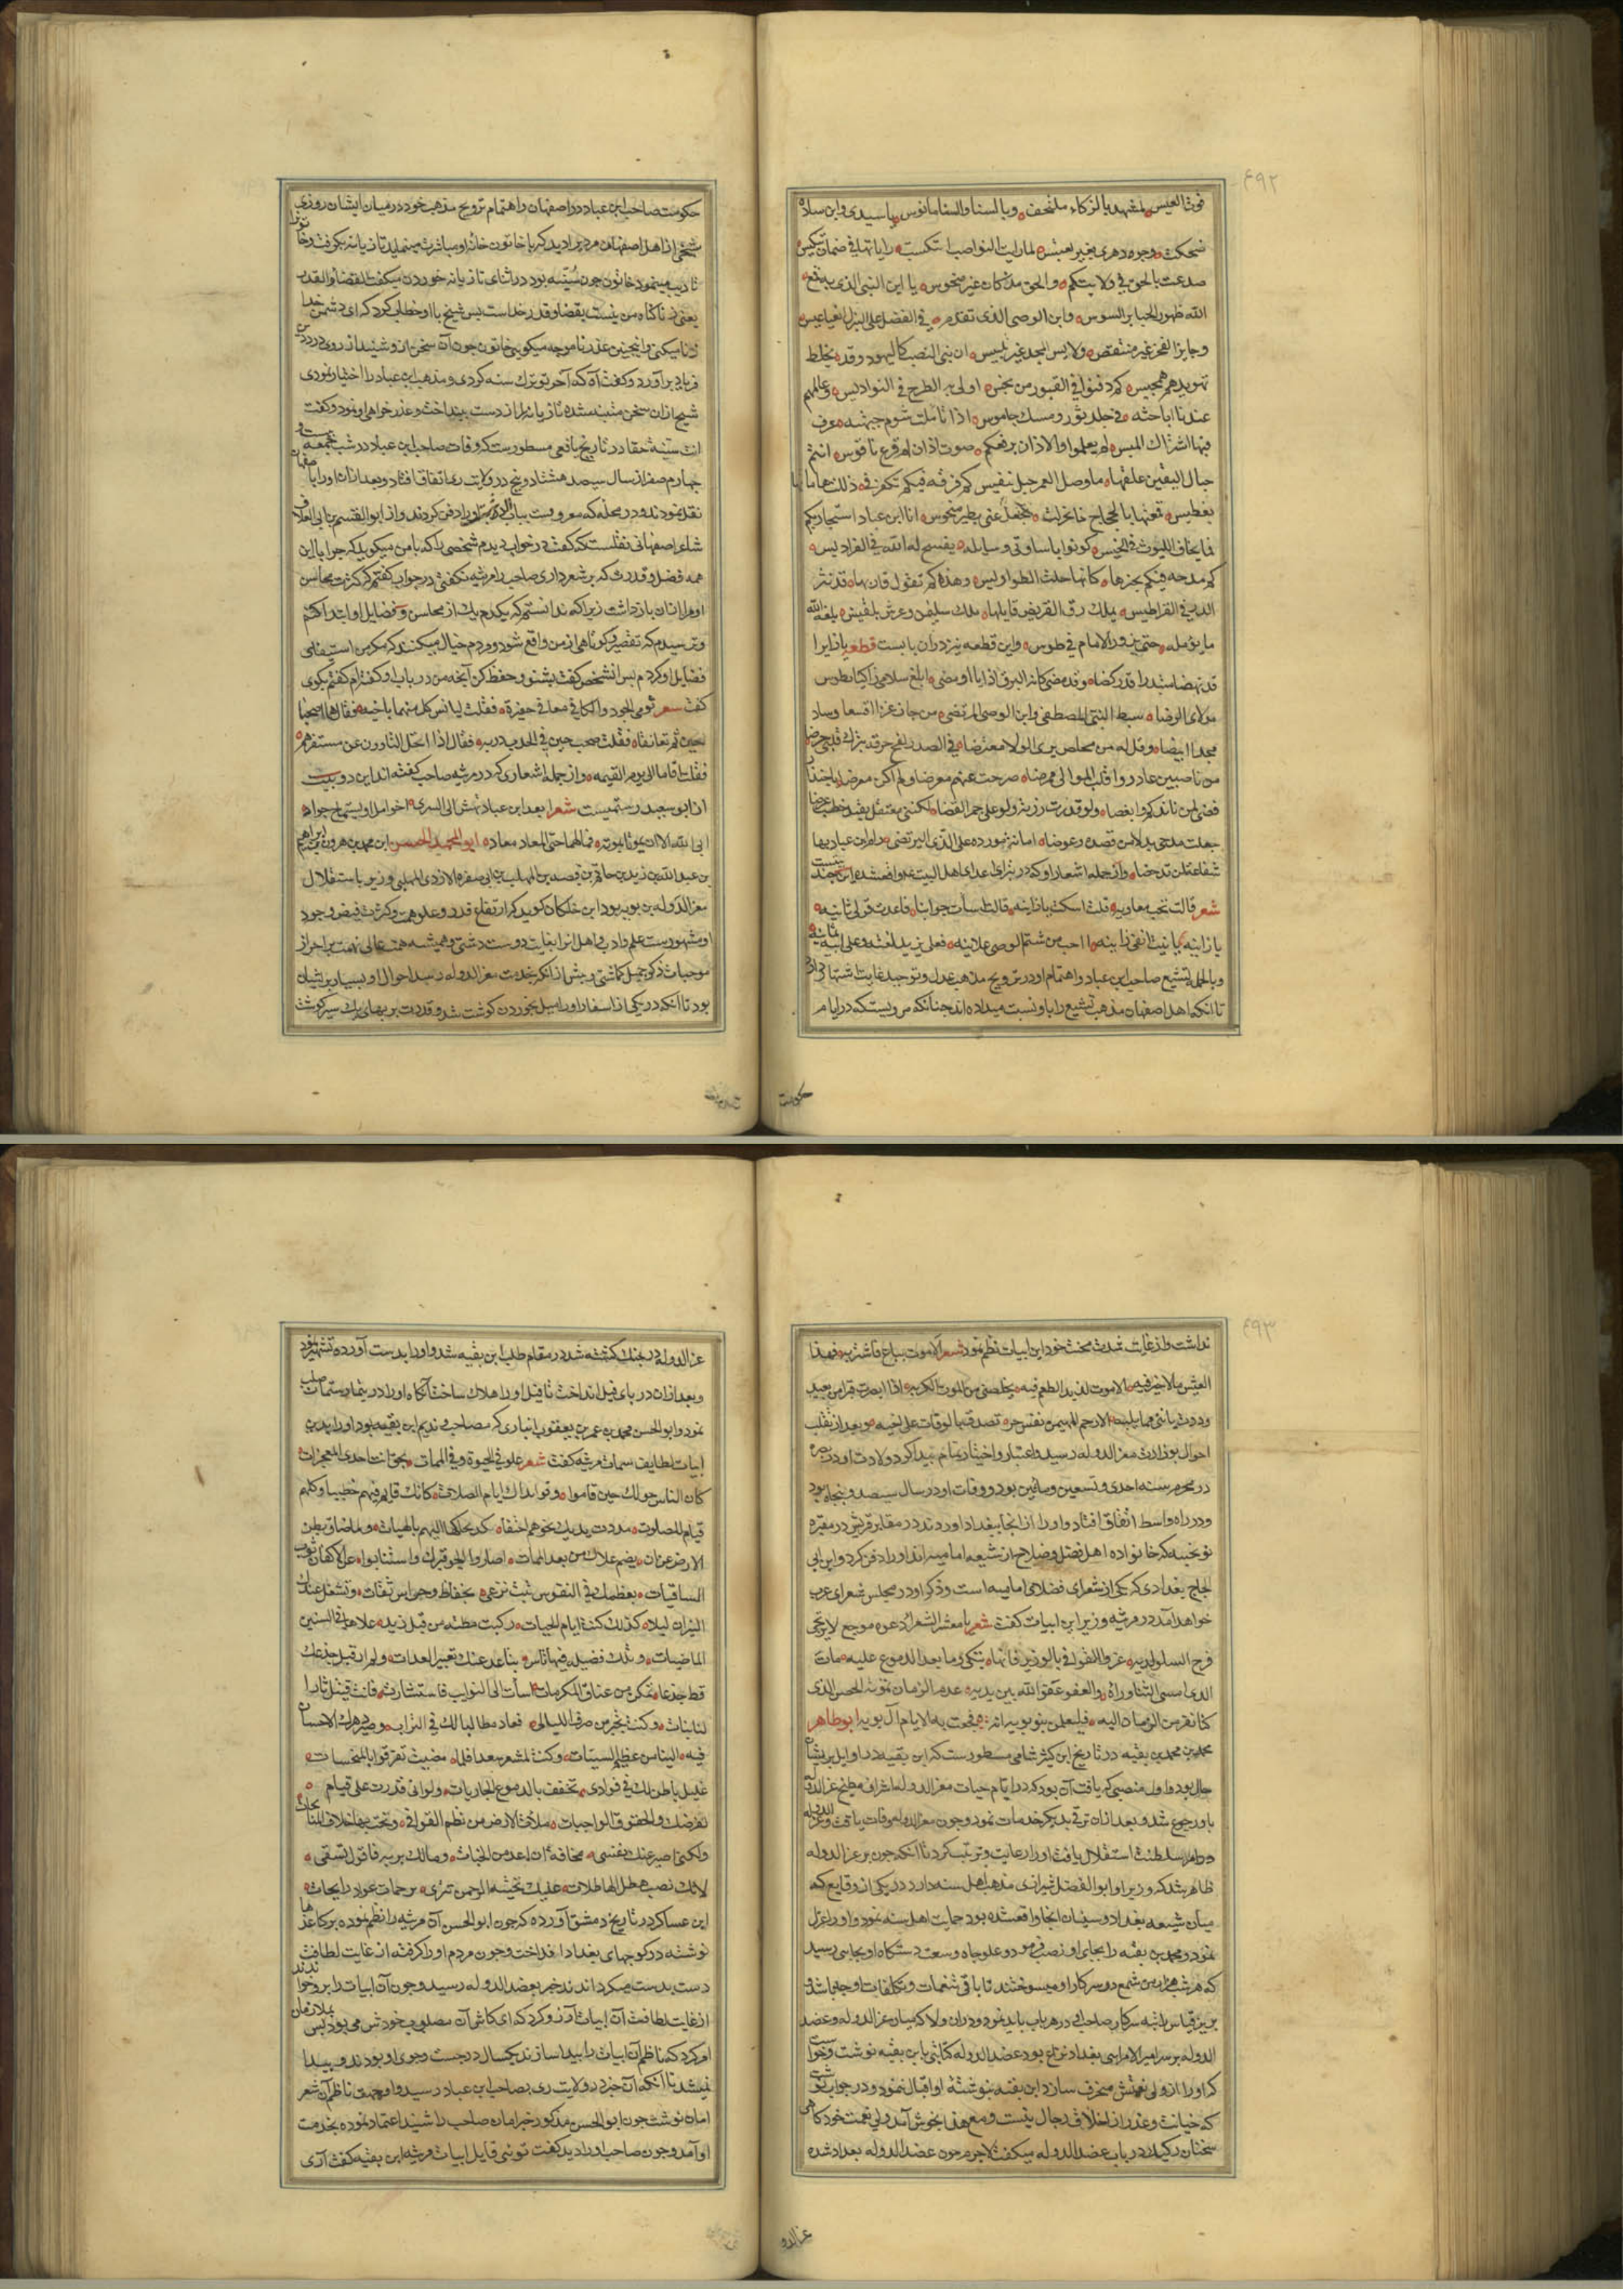 ۶۹۲
وجوه دهری بخیر تعبس لما رایت النواصب انتکست رایاتها فی ضمان
صدعت بالحق فی ولایتکم والحق مذ کان غیر منحوس یا ابن النبی الذی به قمع
الله ظهور الجبابر السوس وابن الوصی الذی تقدم فی الفضل علی البزل القناعیس
وحایز الفخر غیر منتقص ولابس المجد غیر تلبیس ان بنی النصب کالیهود وقد یخلط
تهویدهم بتمجیس کم دفنوا فی القبور من نجس اولی به الطرح فی النواویس
عند اباحثه فی جلد ثور ومسک جاموس اذا تاملت شوم جبهته عرف
لم یعلموا والاذان یرفعکم صوت اذان ام قرع ناقوس انتم
حبال الیقین علقها ما وصل العمر حبل تنفیس کم فرقة فیکم تکفرنی ذللت هاماتها
انا ابن عباد استجار بکم
فما یخاف اللیوث فی الخیس کونوا یا سادتی وسایله یفسح له الله فی الفرادیس
کم مدحه فیکم یحبرها کانها حلة الطواویس وهذه کم تقول قاریها قد نثر
الدر فی القراطیس یملک رق القریض قایلها ملک سلیمن وعرش بلقیس بلغه الله
ما یؤمله حتی یزور الامام فی طوس واین قطعه نیز در آن بابست قطعه یا زایرا
قد نهضا مبتدرا قد رکضا وقد مضی کانه البرق اذا ما اومضی ابلغ سلامی زاکیا بطوس
مولای الرضا سبط النبی المصطفی وابن الوصی المرتضی من حاز عزا اقعسا وساد
مجدا ابیضا وقل له من مخلص یری الولا مفترضا فی الصدر نفح حرقه تترک قلبی حرضا
من ناصبین غادروا قلب الموالی ممرضا صرحت عنهم معرضا ولم اکن معرضا
جعلت مدحی بدلا من قصده وعوضا امانة موردة علی الرضی لیرتضی رام ابن عباد بها
شفاعة لن تدحضا وازجمله اشعار او که در
شعر قالت تحب معاویه قلت اسکتی یا زانیه قالت اسات جوابنا فاعدت قولی ثانیه
یا زانیه یا زانیه یا بنت الفی زانیه ااحب من شتم الوصی علانیه فعلی یزید لعنة وعلی ابیه ثمانیه
وبالجمله تشیع صاحب ابن عباد واهتمام او در ترویج مذهب عدل وتوحید بغایت اشتهار دارد
تا آنکه اهل اصفهان مذهب تشیع را باو نسبت میداده اند چنانکه مرویست که در ایام
حکومت
حکومت صاحب ابن عباد در اصفهان واهتمام ترویج مذهب خود در میان ایشان روزی
شیخی از اهل اصفهان مردیرا دید که با خاتون خانه او مباشرت مینماید تازیانه بگرفت وخاتونرا
تادیب مینمود خاتون چون سنیه بود در اثنای تازیانه خوردن میکفت القضا والقدر
یعنی زنا کناه من نیست بقضا وقدر خداست پس شیخ با او خطاب کرد که ای دشمن خدا
زنا میکنی واینچنین عذر نا موجه میکویی خاتون چون آن سخن از و شنید از روی درد
فریاد برآورد وکفت آه که آخر تو ترک سنه کردی ومذهب ابن عباد را اختیار نمودی
شیخ ازان سخن متنبه شده تازیانه را از دست بینداخت وعذر خواهی او نمود وکفت
انت سنیة حقا در تاریخ یافعی مسطور ست که وفات صاحب ابن عباد در شب جمعه بیست و
چهارم صفر از سال سیصد وهشتاد و پنج در ولایت ری اتفاق افتاد وبعد ازان او را باصفهان
نقل نمودند ودر محله که معروفست بباب او را دفن کردند واز ابو القسم بن ابی العلا
شاعر اصفهانی نقلست که کفت در خواب دیدم شخصی را که با من میکوید که چرا با این
همه فضل وقدرت که بر شعر داری صاحب را مرثیه نکفتی در جواب کفتم که کثرت محاسن
او مرا ازان بازداشت زیرا که ندانستم که بکدام یک از محاسن وفضایل او ابتدا کنم
وترسیدم که تقصیر وکوتاهی از من واقع شود ومردم خیال میکنند که مرا استیفای
فضایل او کردم پس آنشخص کفت بشنو وحفظ کن آنچه من در باب او کفته ام کفتم بکوی
کفت شعر ثوی الجود والکافی معا فی حفیرة فقلت لیانس کل منهما باخیه فقال هما اصطحبا
حیین ثم تعانقا فقلت ضجیعین فی لحد بدریه فقال اذا ارتحل الثاوون عن مستقرهم
فقلت اقاما الی یوم القیمه واز جمله اشعاری که در مرثیه صاحب کفته اند این دو بیت
از ابو سعید رستمیست شعر ابعد ابن عباد یهش الی السری اخو امل او یستماح جواد
ابی الله الا ان یموتا بموته فما لهما حتی المعاد معاد ابو محمد الحسن ابن محمد بن هرون بن ابراهیم
بن عبدالله بن زید بن حاتم بن قبیصه بن المهلب بن ابی صفره الازدی المهلبی وزیر باستقلال
معز الدوله بن بویه بود ابن خلکان کوید که از ارتفاع قدر وعلو همت وکثرت فیض وجود
او مشهورست علم وادب واهل آنرا بغایت دوست داشتی وهمیشه همت عالی نهمت بر احراز
موجبات ذکر جمیل کماشتی وپیش از آنکه بخدمت معز الدوله رسد احوال او بسیار پریشان
بود تا آنکه در یکی از اسفار او را میل بخوردن کوشت شد وقدرت بر بهای یک سیر کوشت
۶۹۳
نداشت واز غایت شدت محنت خود این ابیات نظم نمود شعر الا موت یباع فاشتریه فهذا
العیش ما لا خیر فیه الا موت لذیذ الطعم فیه یخلصنی من الموت الکریه اذا ابصرت قبرا من بعید
وددت باننی مما یلیه الا رحم المهیمن نفس حر تصدق بالوفات علی اخیه وبعد از تقلب
احوال بوزارت معز الدوله رسید واعتبار واختیار تمام پیدا کرد ولادت او در بصره
در محرم سنه احدی وتسعین وماتین بود ووفات او در سال سیصد وپنجاه بود
ودر راه واسط اتفاق افتاد واو را از انجا ببغداد آوردند در مقابر قریش در مقبره
نوبختیه که خانواده اهل فضل وصلاح از شیعه امامیه اند او را دفن کرد وابن ابی
الحجاج بغدادی که یکی از شعرای فضلای امامیه است وذکر او در مجلس شعرای عرب
خواهد آمد در مرثیه وزیر این ابیات کفت شعر یا معشر الشعراء دعوه موجع لا یرتجی
فرح السلو لدیه عزوا القوافی بالوزیر فانها تبکی دما بعد الدموع علیه مات
الذی امسی الثناء وراه والعفو عفو الله بین یدیه هدم الزمان بموته الحصن الذی
کنا نفر من الزمان الیه فلیعلمن بنو بویه انه فجعت به الایام آل بویه ابو طاهر
محمد بن محمد بن بقیه در تاریخ ابن کثیر شامی مسطورست که ابن بقیه در اوایل پریشان
حال بود واول منصبی که یافت آن بود که در ایام حیات معز الدوله اشراف مطبخ عز الدوله
باو رجوع شد وبعد ازان ترقی بدیکر خدمات نمود وچون معز الدوله وفات یافت وعز الدوله
در امر سلطنت استقلال یافت او را رعایت وتربیت کرد تا آنکه چون بر عز الدوله
ظاهر شد که وزیر او ابو الفضل شیرازی مذهب اهل سنه دارد در یکی از وقایع که
میان شیعه بغداد وسنیان آنجا واقع شده بود حمایت اهل سنه نمود او را عزل
نمود ومحمد بن بقیه را بجای او نصب فرمود وعلو جاه وسعت دستکاه او بجایی رسید
که هر شب هزار من شمع در سرکار او میسوختند تا باقی تنعمات وتکلفات او چها باشد و
برین قیاس بقیه سرکار صاحب در هر باب باید نمود ودران ولا که میان عز الدوله وعضد
الدوله بر سر امیر الامرایی بغداد نزاع بود عضد الدوله کتابتی بابن بقیه نوشت وخواست
که او را از ولی نعمتش منحرف سازد ابن بقیه بنوشته او اقبال ننمود ودر جواب نوشت
که خیانت وغدر از اخلاق رجال نیست ومع هذا بخوش آمد ولی نعمت خود کاهی
سخنان رکیک در باب عضد الدوله میکفت لاجرم چون عضد الدوله ببغداد شده
عز الدو
عز الدوله در جنک کشته شد در مقام طلب ابن بقیه شد واو را بدست آورده تشهیر نمود
وبعد ازان در پای فیل انداخت تا فیل او را هلاک ساخت آنکاه او را در بیمارستان صلب
نمود وابو الحسن محمد بن عمر بن یعقوب انباری که مصاحب وندیم ابن بقیه بود او را بدین
ابیات لطایف سمات مرثیه کفت شعر علو فی الحیوة وفی الممات بحق انت احدی المعجزات
کان الناس حولک حین قاموا وفود نداک ایام الصلات کانک قایم فیهم خطیبا وکلهم
قیام للصلوت مددت یدیک نحوهم احتفاء کمدکها الیهم بالهبات وما ضاق بطن
الارض عن ان یضم علاک من بعد الممات اصاروا الجو قبرک واستنابوا عن الاکفان ثوب
السافیات بعظمک فی النفوس تبیت ترعی بحفاظ وحراس ثقات وتشعل عندک
النیران لیلا کذلک کنت ایام الحیات رکبت مطیة من قبل زید علاها فی السنین
الماضیات وتلک فضیلة فیها تاس یباعد عنک تعییر العدات ولم ار قبل جذعک
قط جذعا تمکن من عناق المکرمات اسات الی النوایب فاستشارت فانت قتیل ثار
النایبات وکنت تجیر من صرف اللیالی فعاد مطالبا لک فی الترات وصیر دهرک الاحسان
فیه الینا من عظیم السیئات وکنت لمعشر سعدا فلما مضیت تفرقوا بالمنحسات
غلیل باطن لک فی فوادی تخفف بالدموع الجاریات ولو انی قدرت علی قیام
لفرضک والحقوق الواجبات ملات الارض من نظم القوافی ونحت بها خلاف النائحات
ولکنی اصبر عنک نفسی مخافة ان اعد من الجنات وما لک تربة فاقول تسقی
لانک نصب هطل الهاطلات علیک تحیة الرحمن تتری برحمات غواد رایحات
ابن عساکر در تاریخ دمشق آورده که چون ابو الحسن آن مرثیه را نظم نموده بر کاغذها
نوشته در کوچهای بغداد انداخت وچون مردم او را کرفته از غایت لطافت
دست بدست میکردانند خبر بعضد الدوله رسید وچون آن ابیات را برو خواندند
از غایت لطافت آن ابیات آرزو کرد که ای کاش آن مصلوب خودش می بود پس بملازمان
امر کرد که ناظم آن ابیات را پیدا سازند یکسال در جست وجوی او بودند وپیدا
نمیشد تا آنکه آن خبر در ولایت ری بصاحب ابن عباد رسید واو بجهت ناظم آن شعر
امان نوشت چون ابو الحسن مذکور خبر امان صاحب را شنید اعتماد نموده بخدمت
او آمد وچون صاحب او را دید کفت تویی قایل ابیات مرثیه ابن بقیه کفت آری